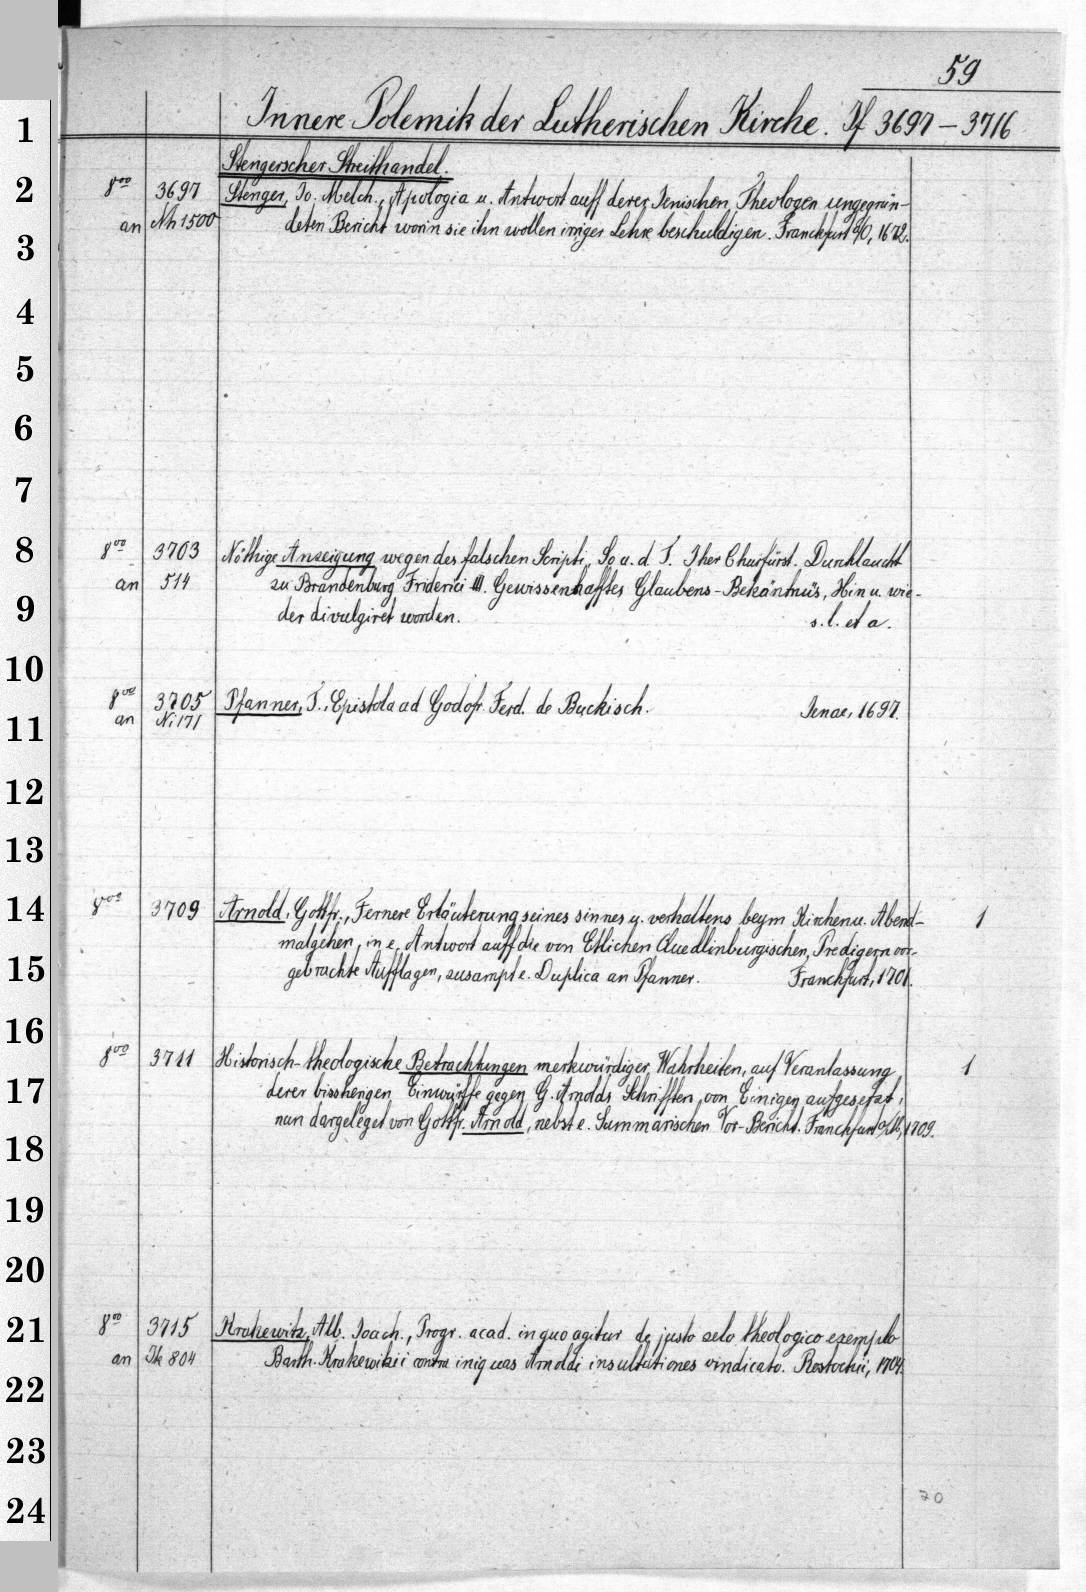 59
Innere Polemik der Lutherischen Kirche. If 3697 – 3716
Stengerscher Streithandel.
8vo 3697 Stenger, Jo. Melch., Apologia u. Antwort auff derer Jenischen Theologen ungegrün-
an Nh 1500 deten Bericht worin sie ihn wollen irriger Lehre beschuldigen. Franckfurt a/O, 1672.
8vo 3703 Nöthige Anzeigung wegen des falschen Scripti, So u. d. T. Iher Churfürst. Durchlaucht
an 514 zu Brandenburg Friderici III. Gewissenhafftes Glaubens-Bekäntnüs, Hin u. wie-
der divulgiret worden. s. l. et a.
8vo 3705 Pfanner, T., Epistola ad Godofr. Ferd. de Buckisch. Jenae, 1697.
an Ni 171
8vo 3709 Arnold, Gottfr., Fernere Erläuterung seines sinnes u. verhaltens beym Kirchen u. Abend- 1
malgehen, in e. Antwort auff die von Etlichen Quedlinburgischen Predigern vor-
gebrachte Aufflagen, zusampt e. Duplica an Pfanner. Franckfurt, 1701.
8vo 3711 Historisch-theologische Betrachtungen merkwürdiger Wahrheiten, auf Veranlassung 1
derer bissherigen Einwürffe gegen G. Arnolds Schrifften, von Einigen aufgesetzt,
nun dargeleget von Gottfr. Arnold, nebst e. Summarischen Vor-Bericht. Franckfurt a/M, 1709.
8vo 3715 Krakewitz, Alb. Joach., Progr. acad. in quo agitur de justo zelo theologico exemplo
an Ik 804 Barth. Krakewitzii contra iniquas Arnoldi insultationes vindicato. Rostochii, 1704.
20
1
2
3
4
5
6
7
8
9
10
11
12
13
14
15
16
17
18
19
20
21
22
23
24